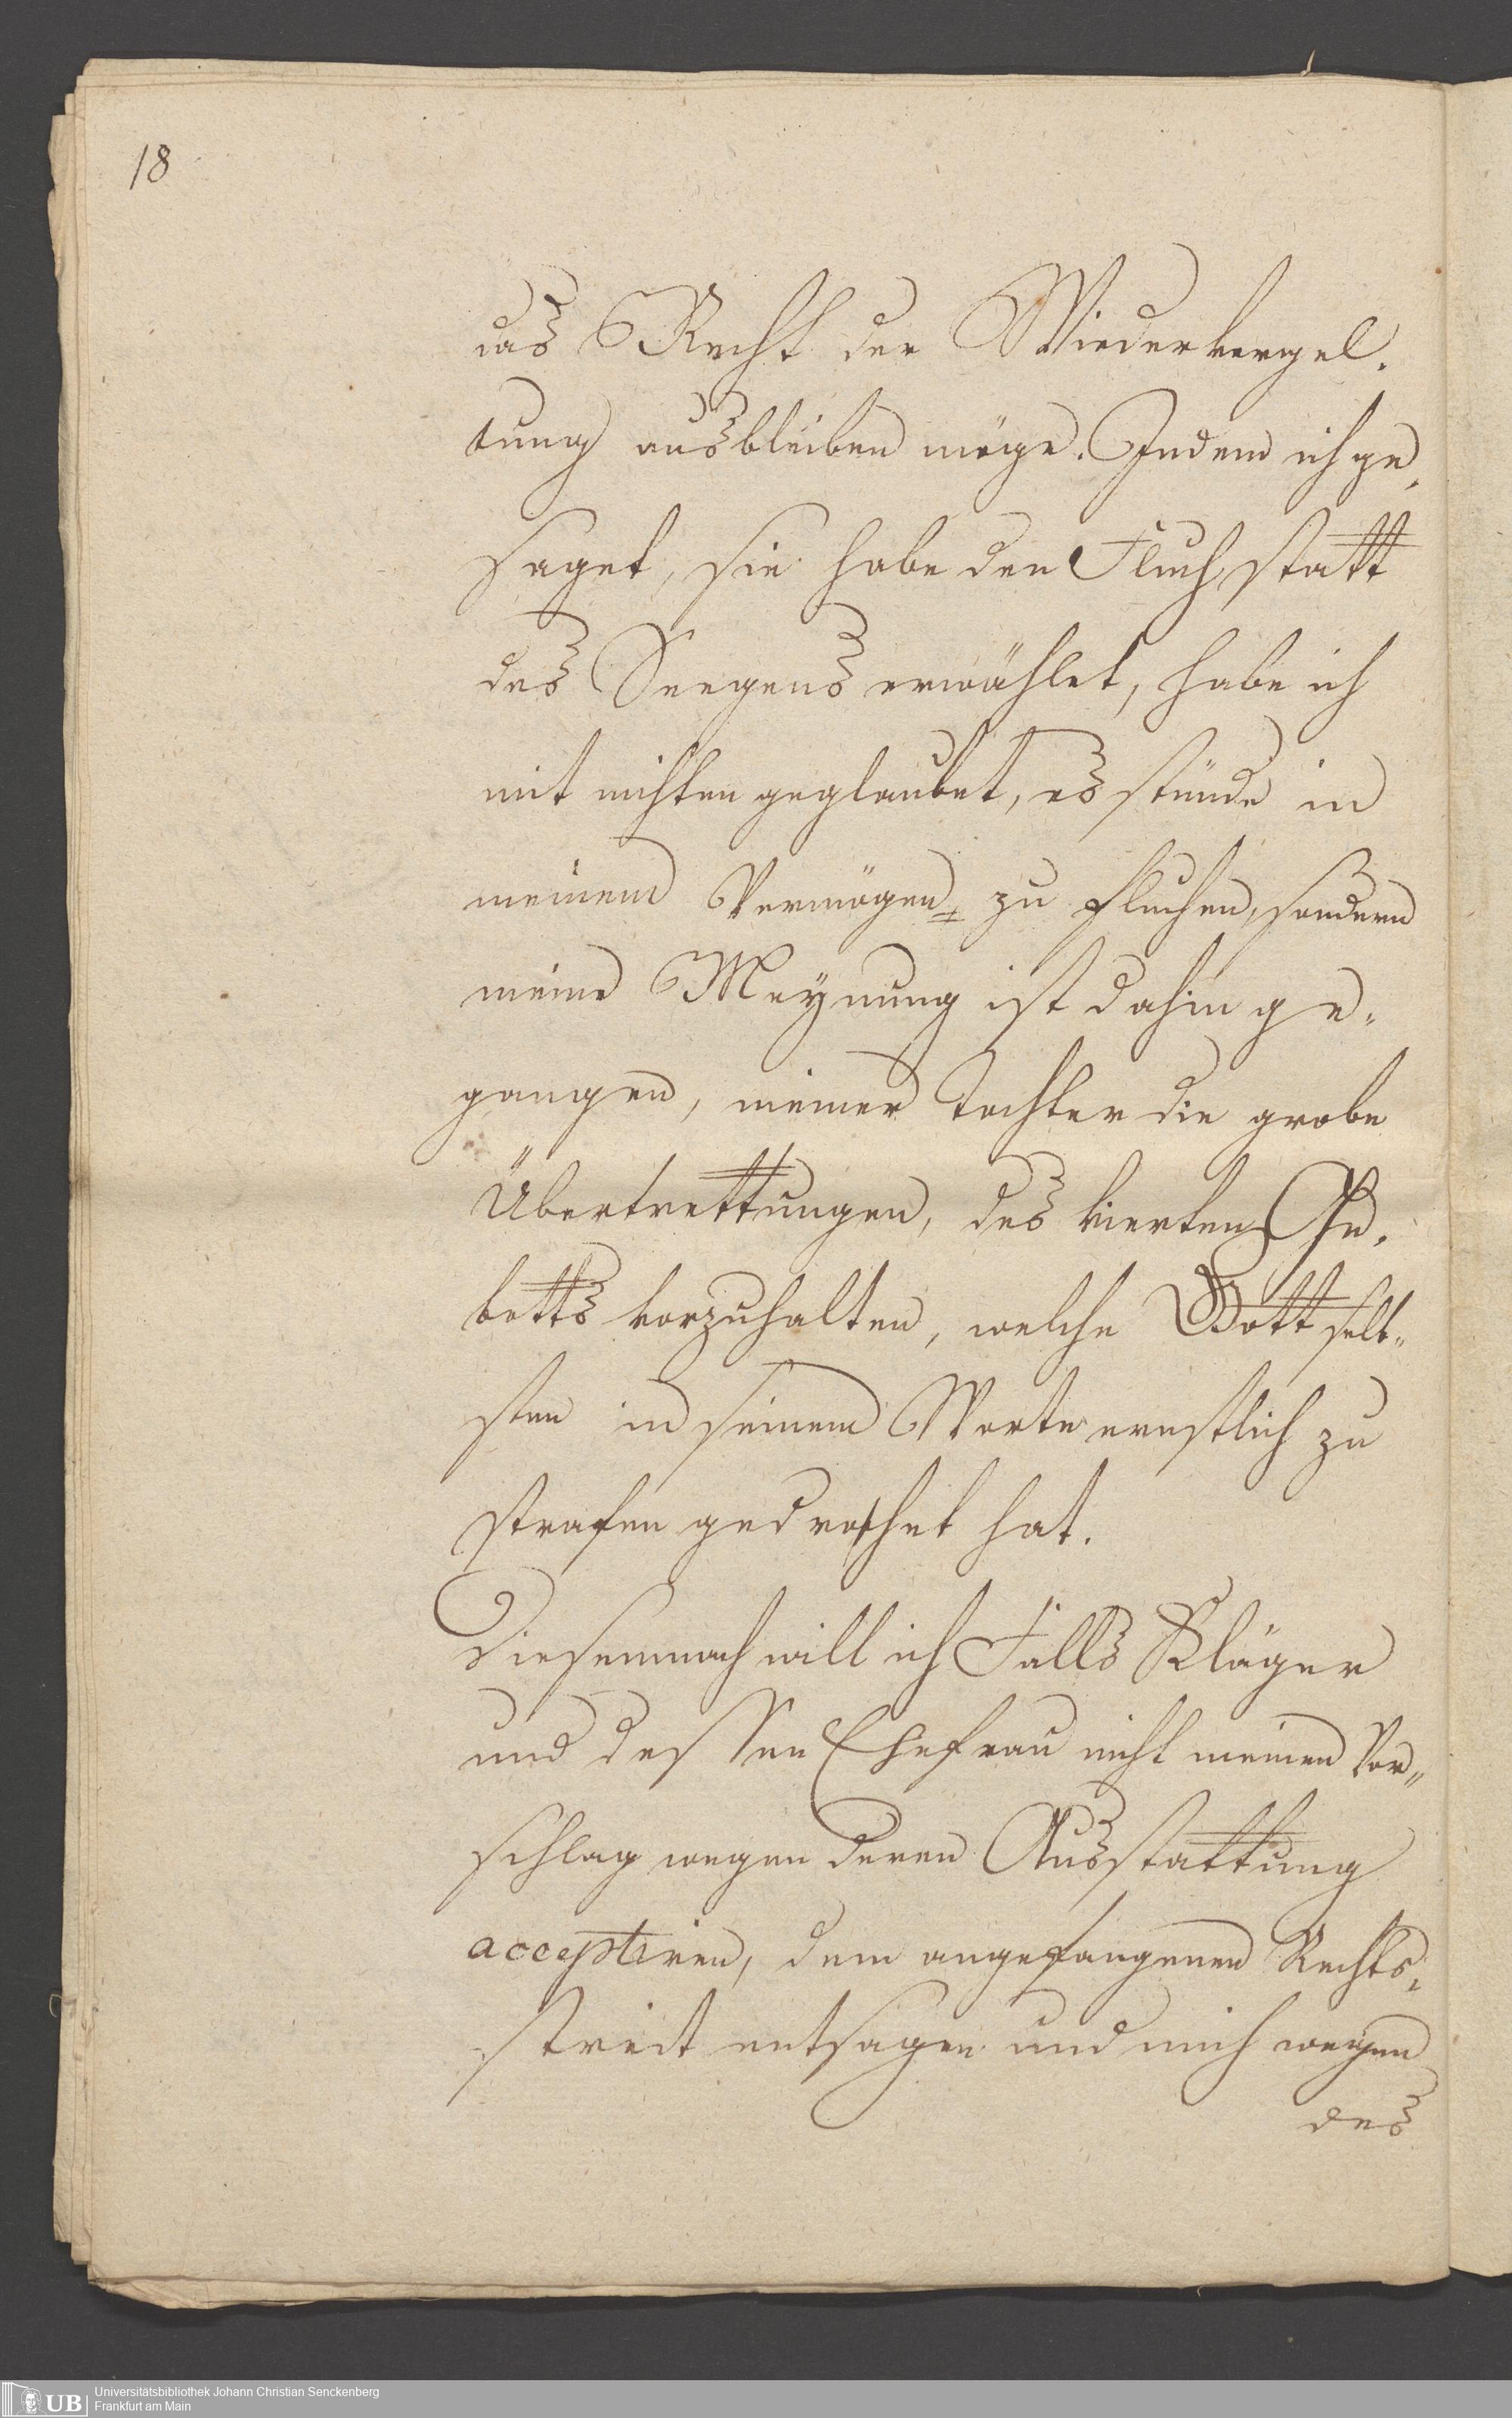 18
das Recht der Wiedervergel-
tung ausbleiben möge. Indem ich ge-
saget, sie habe den Fluch statt
des Seegens erwählet, habe ich
mit nichten geglaubet, es stünde in
meinem Vermögen zu fluchen, sondern
meine Meynung ist dahin ge-
gangen, meiner Tochter die grobe
Übertrettungen, des vierten Ge-
botts vorzuhalten, welche Gott selb-
sten in seinem Worte ernstlich zu
strafen gedrohet hat.
Diesemnach will ich Falls Kläger
und dessen Ehefrau nicht meinen Vor-
schlag wegen deren Ausstattung
acceptiren, dem angefangenen Rechts-
streit entsagen und mich wegen
des
UB
Universitätsbibliothek Johann Christian Senckenberg
Frankfurt am Main